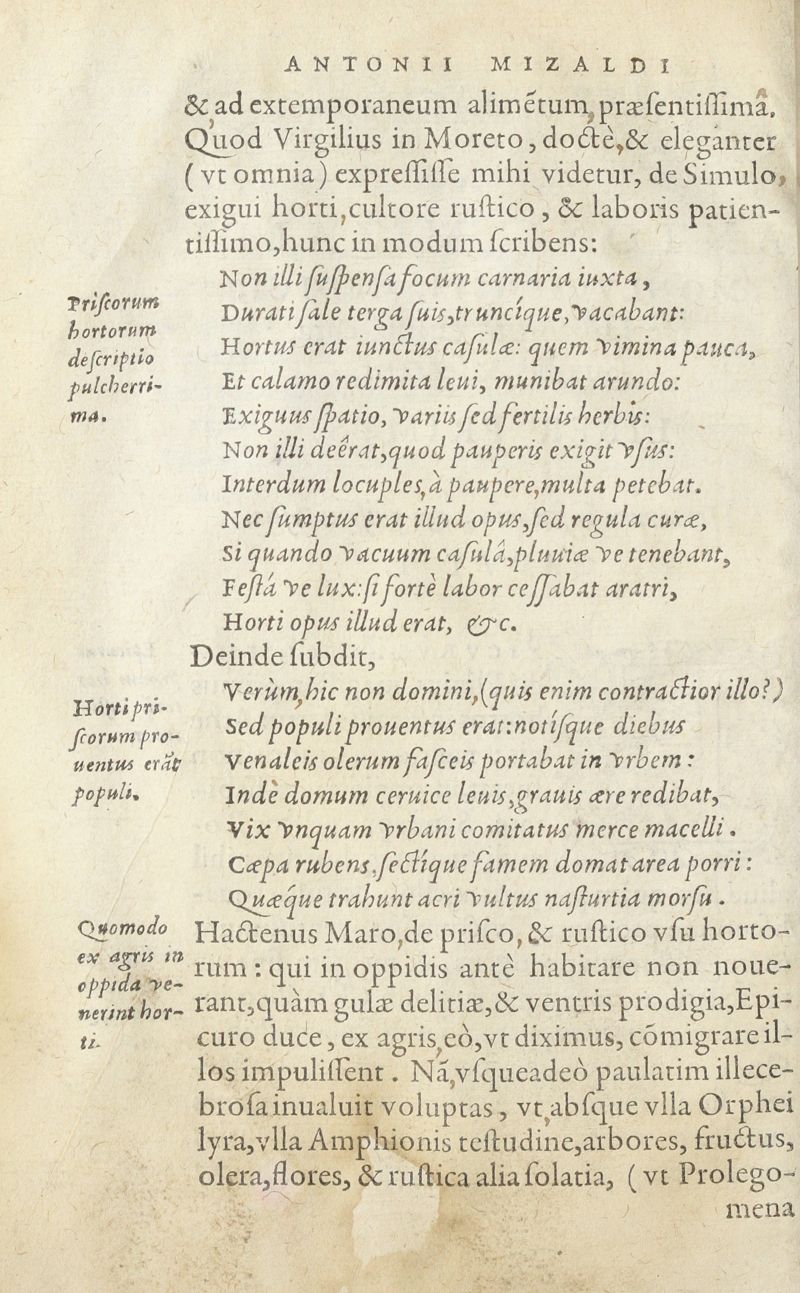 ANTONII MIZALDI
& ad extemporaneum alimẽtum, præſentiſſimã.
Quod Virgilius in Moreto, doctè, & eleganter
(vt omnia) expreſſiſſe mihi videtur, de Simulo,
exigui horti, cultore ruſtico, & laboris patien-
tiſſimo, hunc in modum ſcribens:
Priſcorum
hortorum
deſcriptio
pulcherri-
ma.
Non illi ſuſpenſa focum carnaria iuxta,
Durati ſale terga ſuis, truncíque, vacabant:
Hortus erat iunctus caſulæ: quem vimina pauca,
Et calamo redimita leui, munibat arundo:
Exiguus ſpatio, variis ſed fertilis herbis:
Non illi deêrat, quod pauperis exigit vſus:
Interdum locuples, à paupere, multa petebat.
Nec ſumptus erat illud opus, ſed regula curæ,
Si quando vacuum caſulâ, pluuiæ ve tenebant,
Feſtá ve lux: ſi fortè labor ceſſabat aratri,
Horti opus illud erat, &c.
Deinde ſubdit,
Horti pri-
ſcorum pro-
uentus erãt
populi.
Verùm, hic non domini, (quis enim contractior illo?)
Sed populi prouentus erat: notíſque diebus
Venaleis olerum faſceis portabat in vrbem:
Indè domum ceruice leuis, grauis ære redibat,
Vix vnquam vrbani comitatus merce macelli.
Cæpa rubens, ſectíque famem domat area porri:
Quæque trahunt acri vultus naſturtia morſu.
Quomodo
ex agris in
oppida ve-
nerint hor-
ti.
Hactenus Maro, de priſco, & ruſtico vſu horto-
rum: qui in oppidis antè habitare non noue-
rant, quàm gulæ delitiæ, & ventris prodigia, Epi-
curo duce, ex agris, eò, vt diximus, cõmigrare il-
los impuliſſent. Nã, vſqueadeò paulatim illece-
broſa inualuit voluptas, vt, abſque vlla Orphei
lyra, vlla Amphionis teſtudine, arbores, fructus,
olera, flores, & ruſtica alia ſolatia, (vt Prolego-
mena